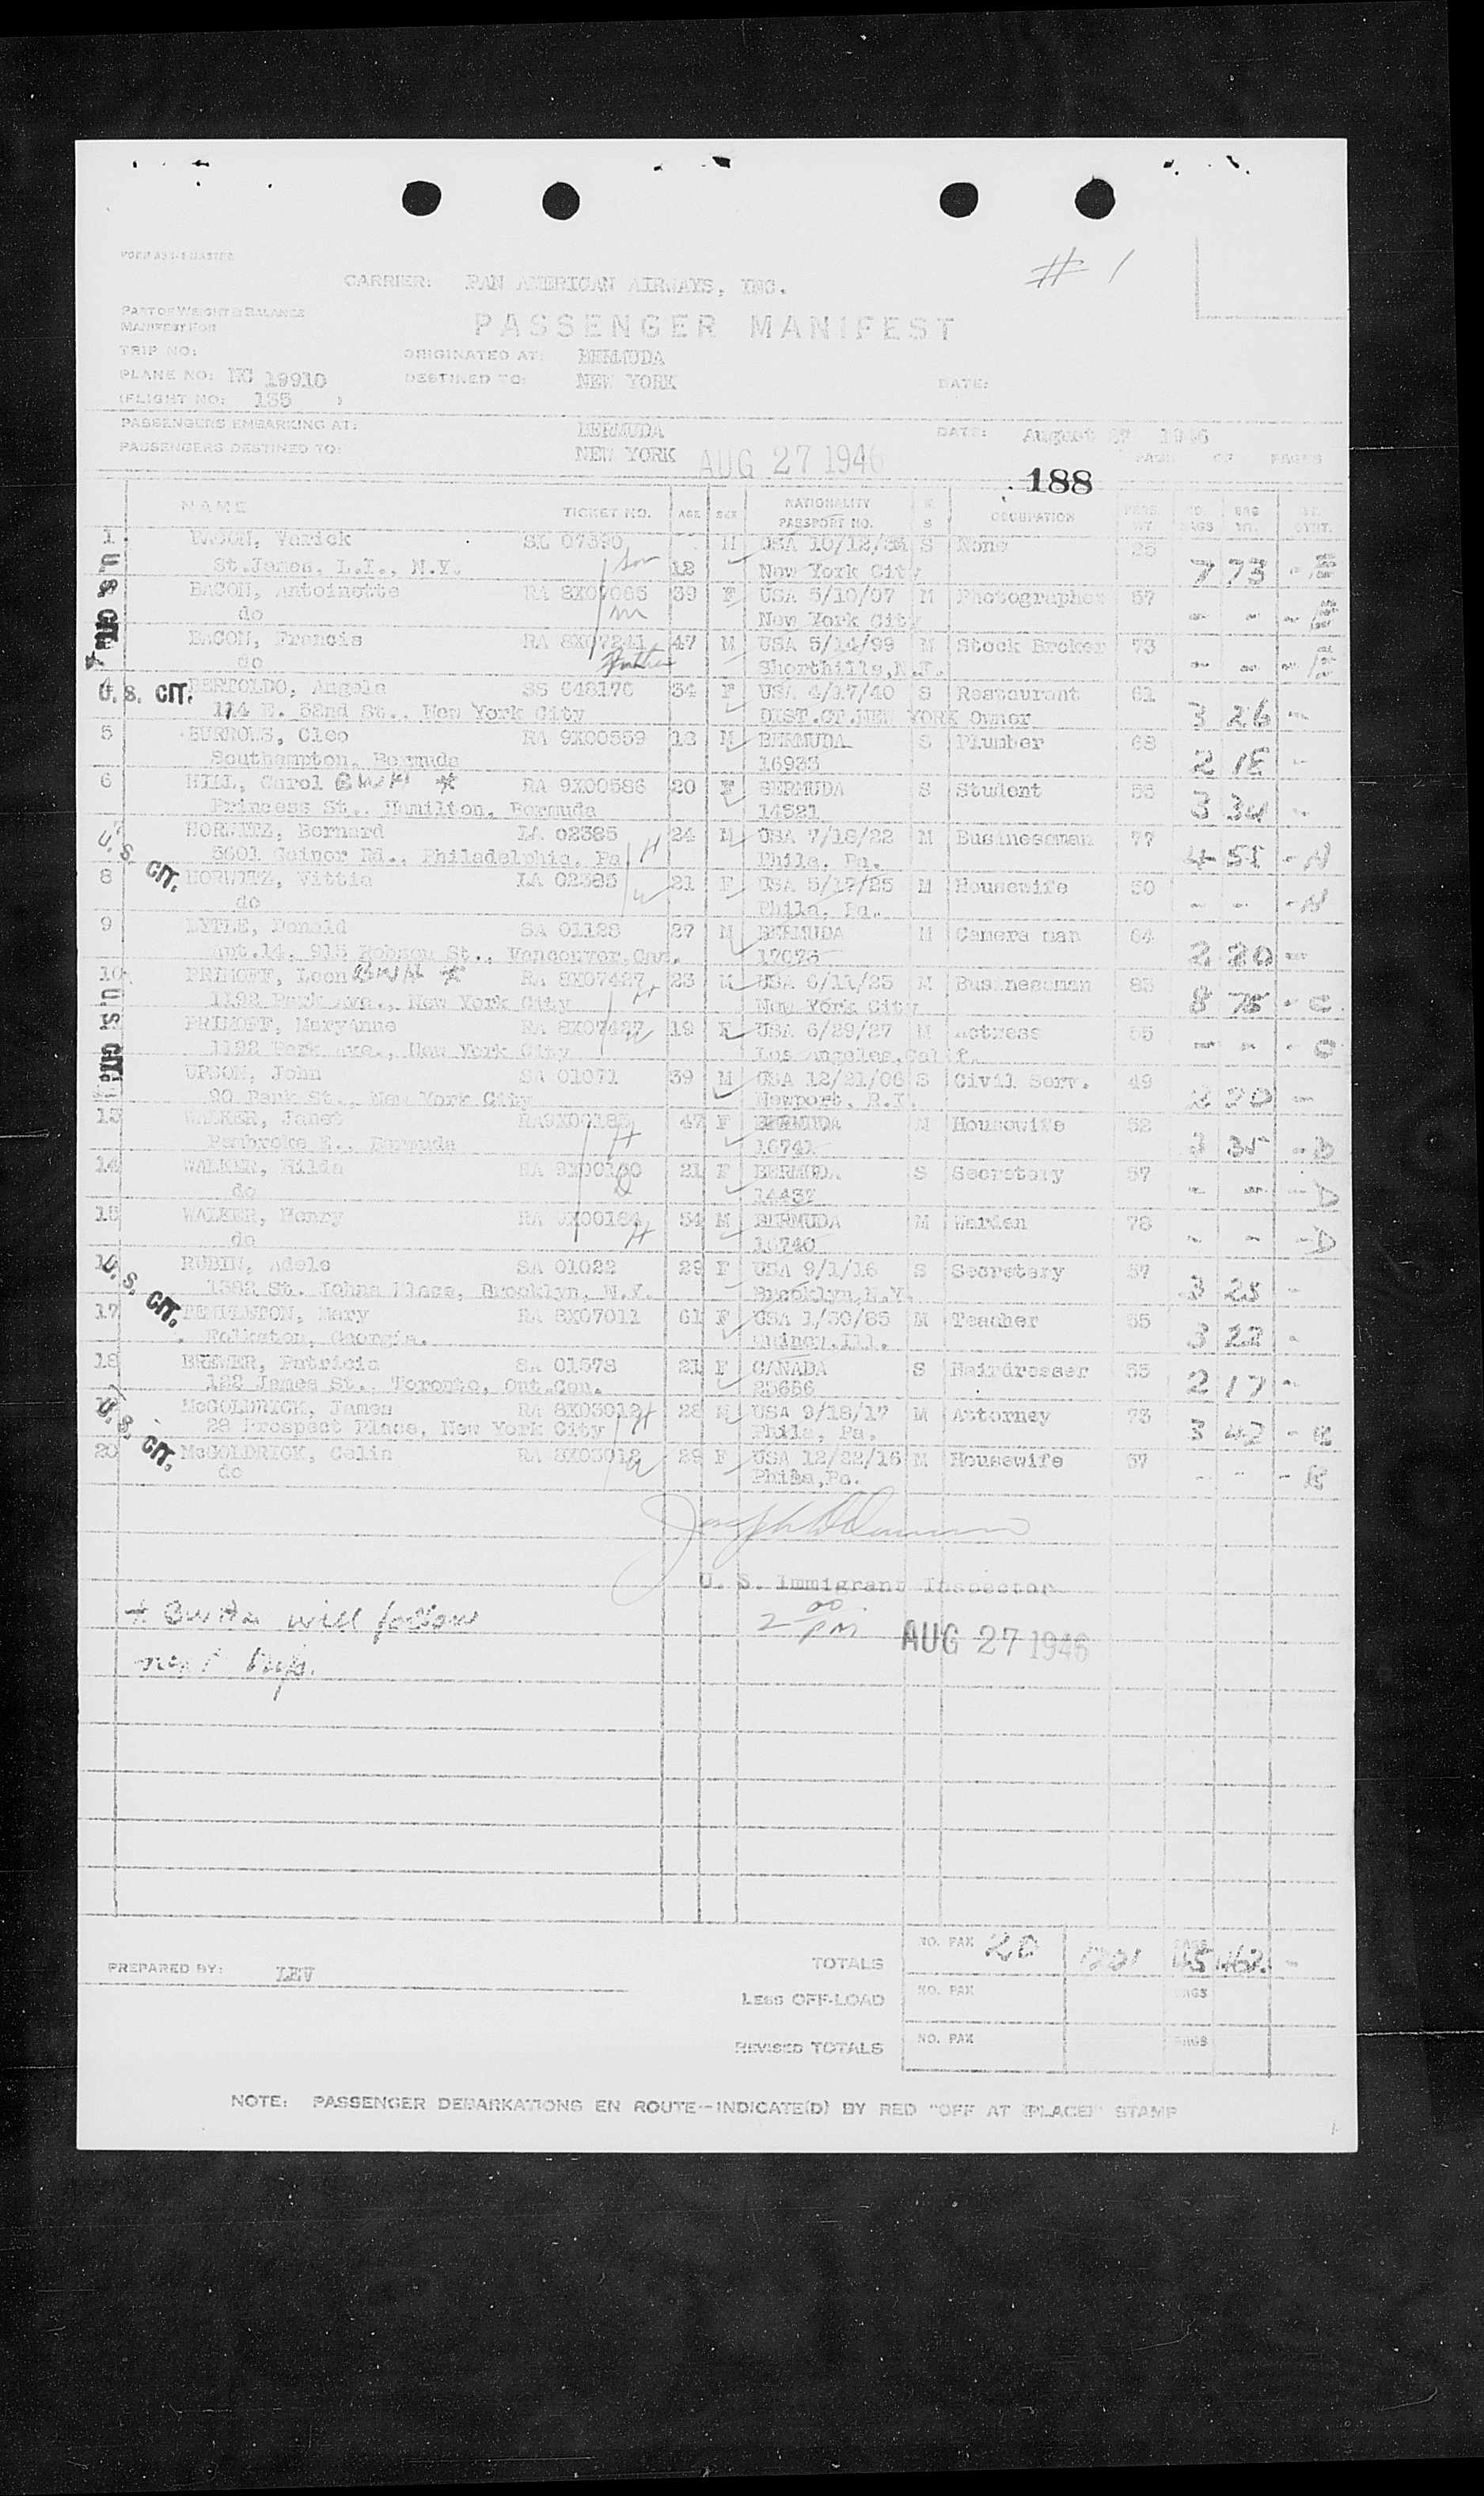 # 1
CARRIER: PAN AMERICAN AIRWAYS, INC.
PART OF WEIGHT & BALANCE
MANIFEST FOR
PASSENGER MANIFEST
TRIP NO:
ORIGINATED AT: BERMUDA
PLANE NO: NC 19910
DESTINED TO: NEW YORK
DATE:
(FLIGHT NO: 135 )
PASSENGERS EMBARKING AT: BERMUDA
DATE: August 27 1946
PASSENGERS DESTINED TO: NEW YORK
AUG 27 1946
PAGE OF PAGES
188
NAME TICKET NO. AGE SEX NATIONALITY PASSPORT NO. M S OCCUPATION PERS. WT. NO. BAGS BAG WT.
1 BACON, Varick M USA S None 25
St.James, L.I., N.Y. Son 12 New York City 7 73
U S CIT.
BACON, Antoinette 39 F USA 5/10/07 M Photographer 57
do New York City
BACON, Francis RA 8X07241 47 M USA 5/14/99 M Stock Broker 73
do Father Shorthills, N.J.
U. S. CIT.
BERTOLDO, Angela 34 F USA 4/17/40 S Restaurant 61
114 E. 52nd St., New York City DIST.CT.NEW YORK Owner 3 26 -
5 BURROWS, Cleo RA 9X00559 M BERMUDA S Plumber 68
Southampton, Bermuda 16933 2 18 -
6 HILL, Carol BWHA * RA 9X00586 20 F BERMUDA S Student
Princess St., Hamilton, Bermuda 14521 3 34 -
7 HORWITZ, Bernard LA 02385 24 M USA 7/18/22 M Businessman 77
5601 Gainor Rd., Philadelphia, Pa. H Phila, Pa. 4 51
U. S. CIT.
8 HORWITZ, Vittia LA 02385 21 F USA 5/19/25 M Housewife 50
do W Phila, Pa.
9 LYTLE, Donald SA 01128 27 M BERMUDA M Camera man 64
Apt.14, 915 Robson St., Vancouver, Can. 17076 2 20 -
10 PRIMOFF, Leon BWHA * RA 8X07427 23 M USA 6/11/23 M Businessman 83
1192 Park Ave., New York City H New York City 8 75
U. S. CIT.
PRIMOFF, MaryAnne RA 8X07427 19 F USA 6/29/27 M Actress 55
1192 Park Ave., New York City W Los Angeles, Calif.
UPSON, John SA 01071 39 M USA 12/21/06 S Civil Serv. 49
90 Bank St., New York City Newport, R.I. 2 20 -
13 WALKER, Janet 47 F BERMUDA M Housewife 52
Pembroke E., Bermuda 16741 3 35
14 WALKER, Hilda 21 F BERMUDA S Secretary 57
do 14437
15 WALKER, Henry 54 M BERMUDA M Warden 78
do H 16740
16 RUBIN, Adele SA 01022 29 F USA 9/1/16 S Secretary 57
1382 St. Johns Place, Brooklyn, N.Y. Brooklyn, N.Y. 3 25 -
U. S. CIT.
17 Mary RA 8X07011 61 F USA 1/30/85 M Teacher 65
Folkston, Georgia. Quincy, Ill. 3 22 -
18 BREWER, Patricia SA 01578 21 F CANADA S Hairdresser 55
122 James St., Toronto, Ont. Can. 25656 2 17 -
McGOLDRICK, James RA 8X03012 28 M USA 9/18/17 M Attorney 73
28 Prospect Place, New York City H Phila, Pa. 3 42
U. S. CIT.
20 McGOLDRICK, Celia RA 8X03012 29 F USA 12/22/16 M Housewife 57
do W Phila, Pa.
U. S. Immigrant Inspector
2 00 PM AUG 27 1946
* BWHA will follow
next trip.
TOTALS NO. PAX 20 1221 BAGS 45
PREPARED BY: LEV
LESS OFF-LOAD NO. PAX BAGS
REVISED TOTALS NO. PAX BAGS
NOTE: PASSENGER DEBARKATIONS EN ROUTE--INDICATE(D) BY RED "OFF AT (PLACE)" STAMP